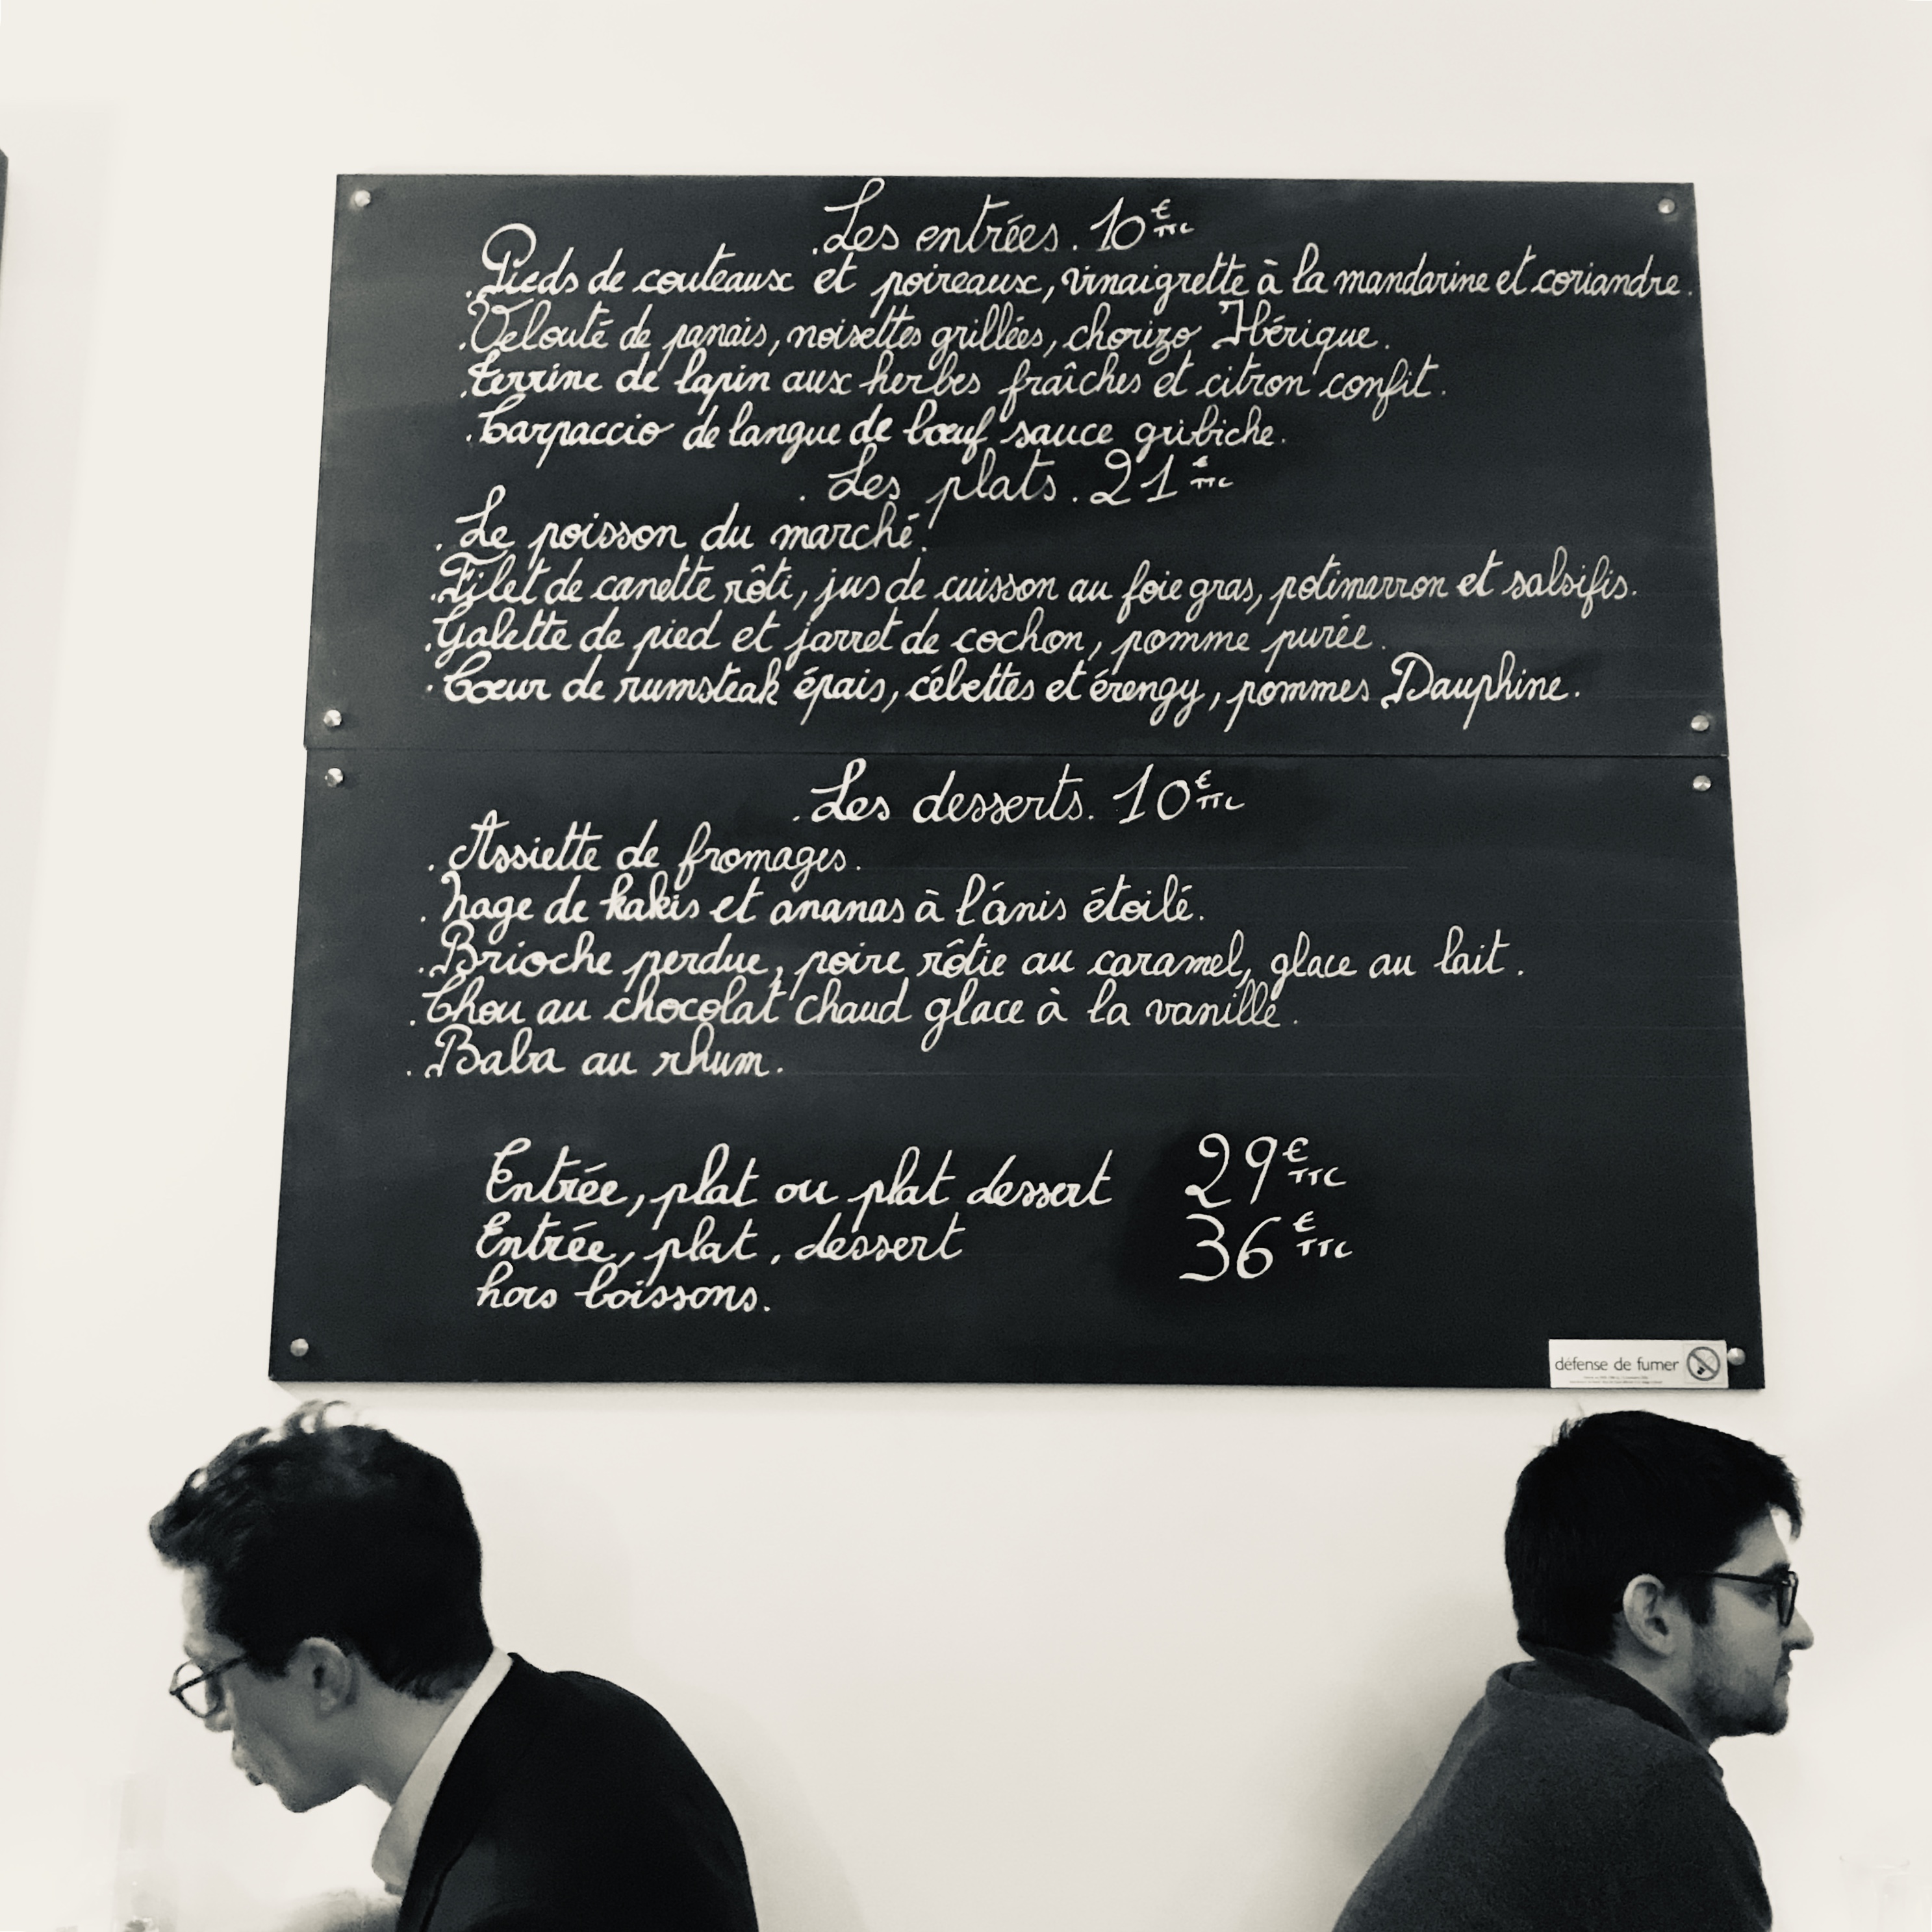 . Les entrées. 10€ TTC
. Pieds de couteaux et poireaux, vinaigrette à la mandarine et coriandre.
. Velouté de panais, noisettes grillées, chorizo Ibérique.
. terrine de lapin aux herbes fraîches et citron confit.
. Carpaccio de langue de bœuf sauce gribiche.
. Les plats. 21€ TTC
. Le poisson du marché.
. Filet de canette rôti, jus de cuisson au foie gras, potimarron et salsifis.
. Galette de pied et jarret de cochon, pomme purée.
. Cœur de rumsteak épais, cébettes et érengy, pommes Dauphine.
. Les desserts. 10€ TTC
. Assiette de fromages.
. Nage de kakis et ananas à l'anis étoilé.
. Brioche perdue, poire rôtie au caramel, glace au lait.
. Chou au chocolat chaud glace à la vanille.
. Baba au rhum.
Entrée, plat ou plat dessert 29€ TTC
Entrée, plat, dessert 36€ TTC
hors boissons.
défense de fumer